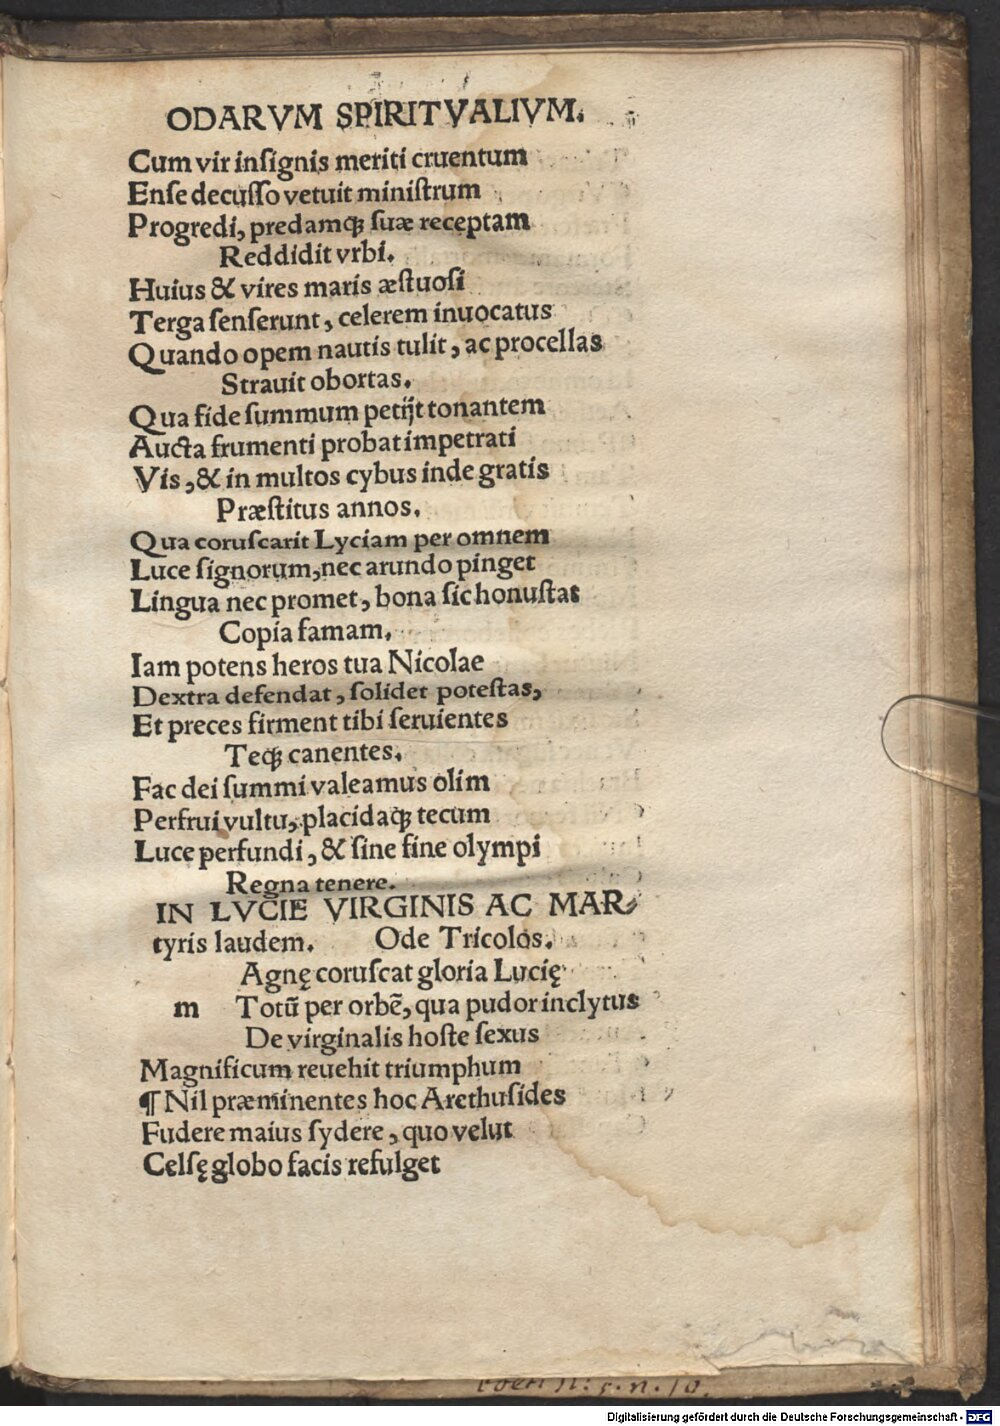 ODARVM SPIRITVALIVM.
Cum vir inſignis meriti cruentum
Enſe decuſſo vetuit miniſtrum
Progredi, predamqꝫ ſuæ receptam
Reddidit vrbi.
Huius & vires maris æſtuoſi
Terga ſenſerunt, celerem inuocatus
Quando opem nautis tulit, ac procellas
Strauit obortas.
Qua fide ſummum petijt tonantem
Aucta frumenti probat impetrati
Vis, & in multos cybus inde gratis
Præſtitus annos.
Qua coruſcarit Lyciam per omnem
Luce ſignorum, nec arundo pinget
Lingua nec promet, bona ſic honuſtat
Copia famam.
Iam potens heros tua Nicolae
Dextra defendat, ſolidet poteſtas,
Et preces firment tibi ſeruientes
Teqꝫ canentes.
Fac dei ſummi valeamus olim
Perfrui vultu, placidaqꝫ tecum
Luce perfundi, & ſine fine olympi
Regna tenere.
IN LVCIE VIRGINIS AC MAR⸗
tyris laudem. Ode Tricolos.
Agnę coruſcat gloria Lucię
m Totū per orbē, qua pudor inclytus
De virginalis hoſte ſexus
Magnificum reuehit triumphum
¶ Nil præminentes hoc Arethuſides
Fudere maius ſydere, quo velut
Celſę globo facis refulget
Digitalisierung gefördert durch die Deutsche Forschungsgemeinschaft - DFG